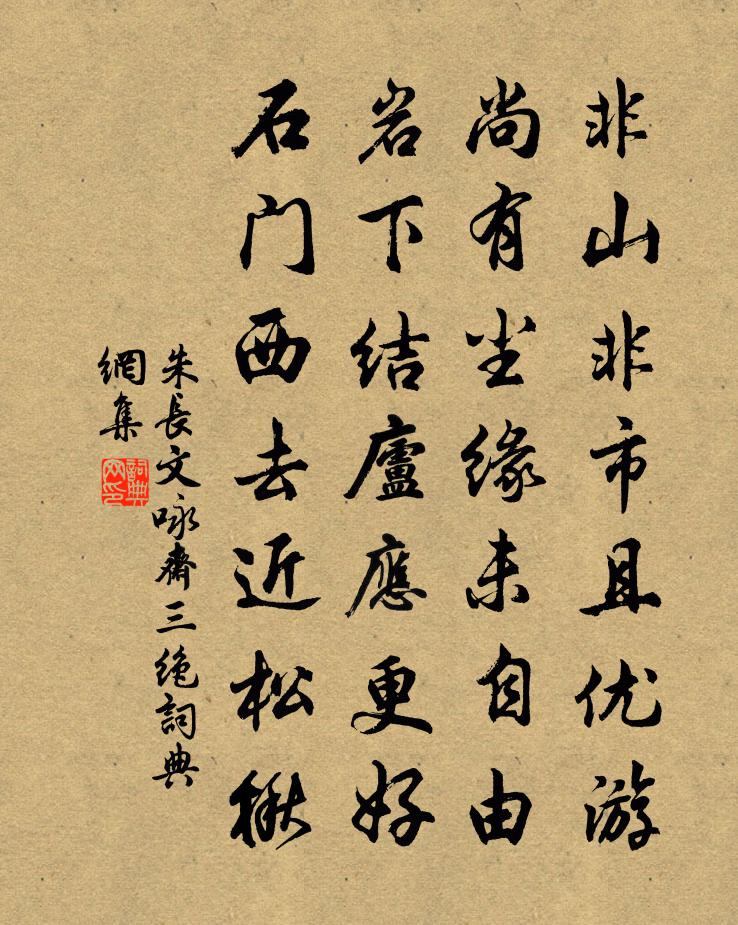 非山非市且优游
尚有尘缘未自由
岩下结廬應更好
石门西去近松楸
朱長文咏齋三绝詞典
網集
詞典
网印